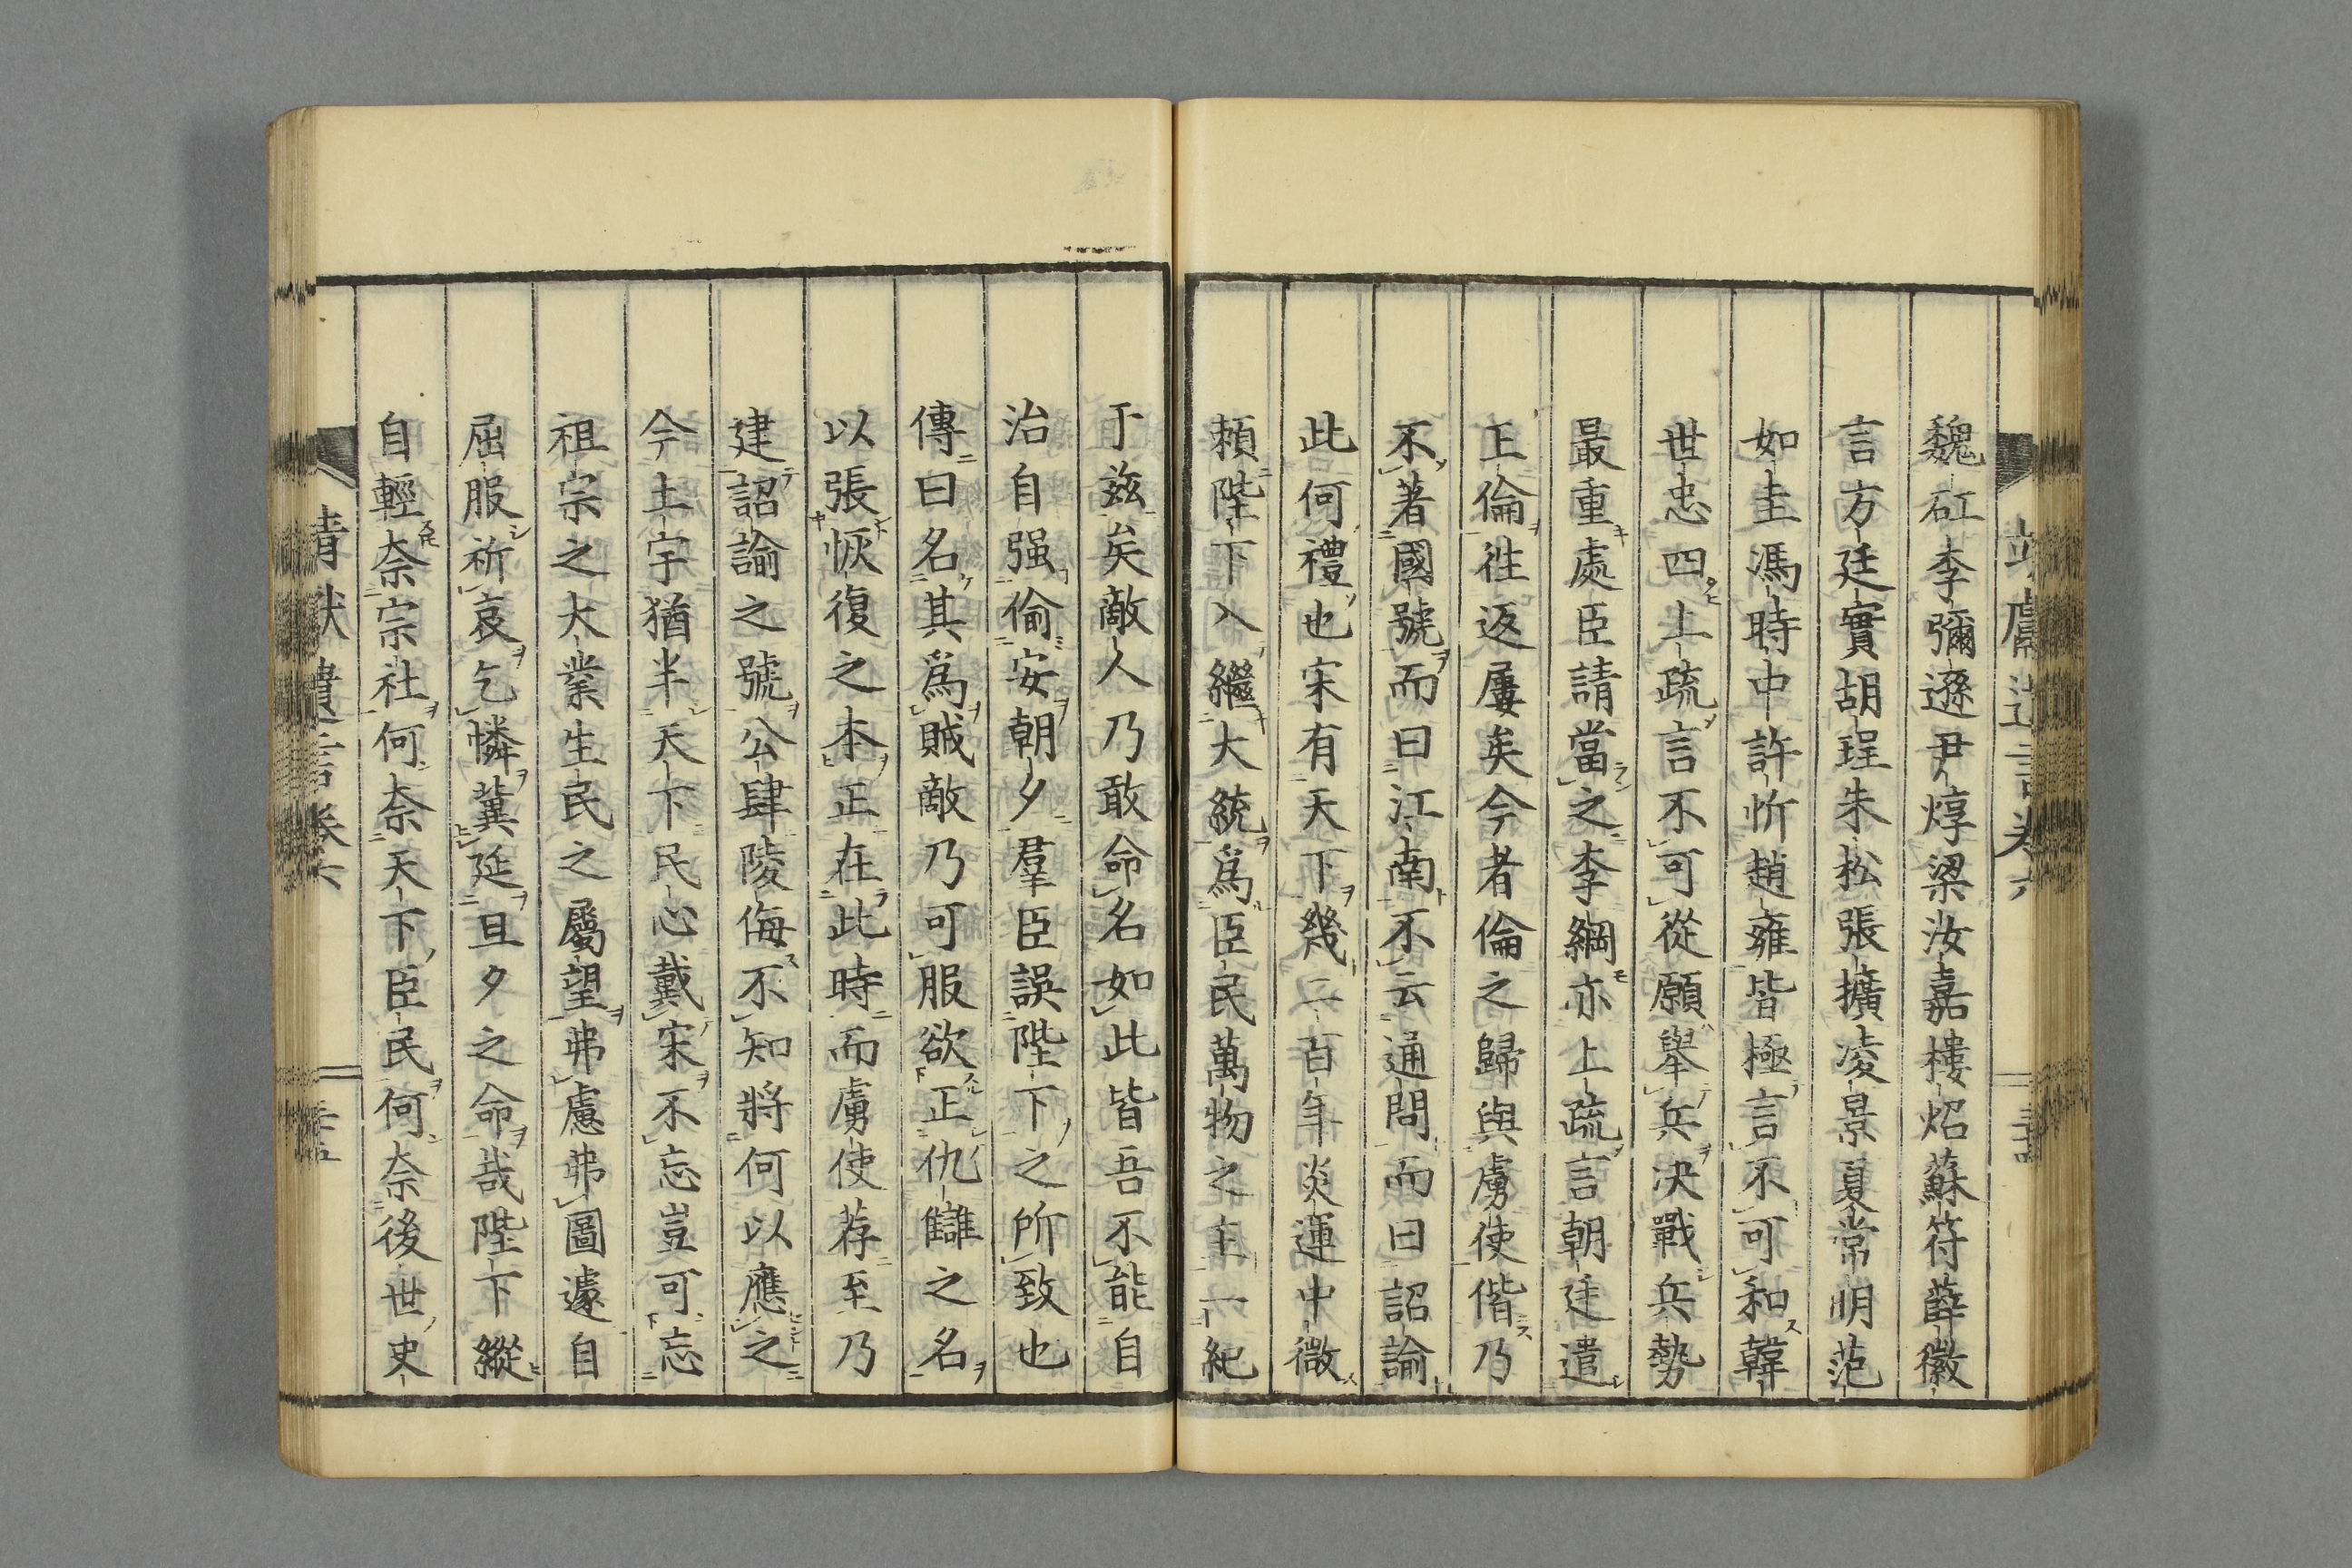 魏矼李彌遜尹焞梁汝嘉樓炤蘇符薛徽
言方廷實胡珵朱松張擴凌景夏常明范
如圭馮時中許忻趙雍皆極言不可和韓
世忠四上疏言不可從願舉兵决戰兵勢
最重處臣請當之李綱亦上疏言朝廷遣
王倫徃返屢矣今者倫之歸與虜使偕乃
不著國號而曰江南不云通問而曰詔諭
此何禮也宋有天下幾二百年炎運中微
頼陛下入繼大統爲臣民萬物之主一紀
于兹矣敵人乃敢命名如此皆吾不能自
治自强偷安朝夕羣臣誤陛下之所致也
傳曰名其爲賊敵乃可服欲正仇讎之名
以張恢復之本正在此時而虜使荐至乃
建詔諭之號公肆陵侮不知將何以應之
今土宇猶半天下民心戴宋不忘豈可忘
祖宗之大業生民之屬望弗慮弗圖遽自
屈服祈哀乞憐冀延旦夕之命哉陛下縱
自輕奈宗社何奈天下臣民何奈後世史